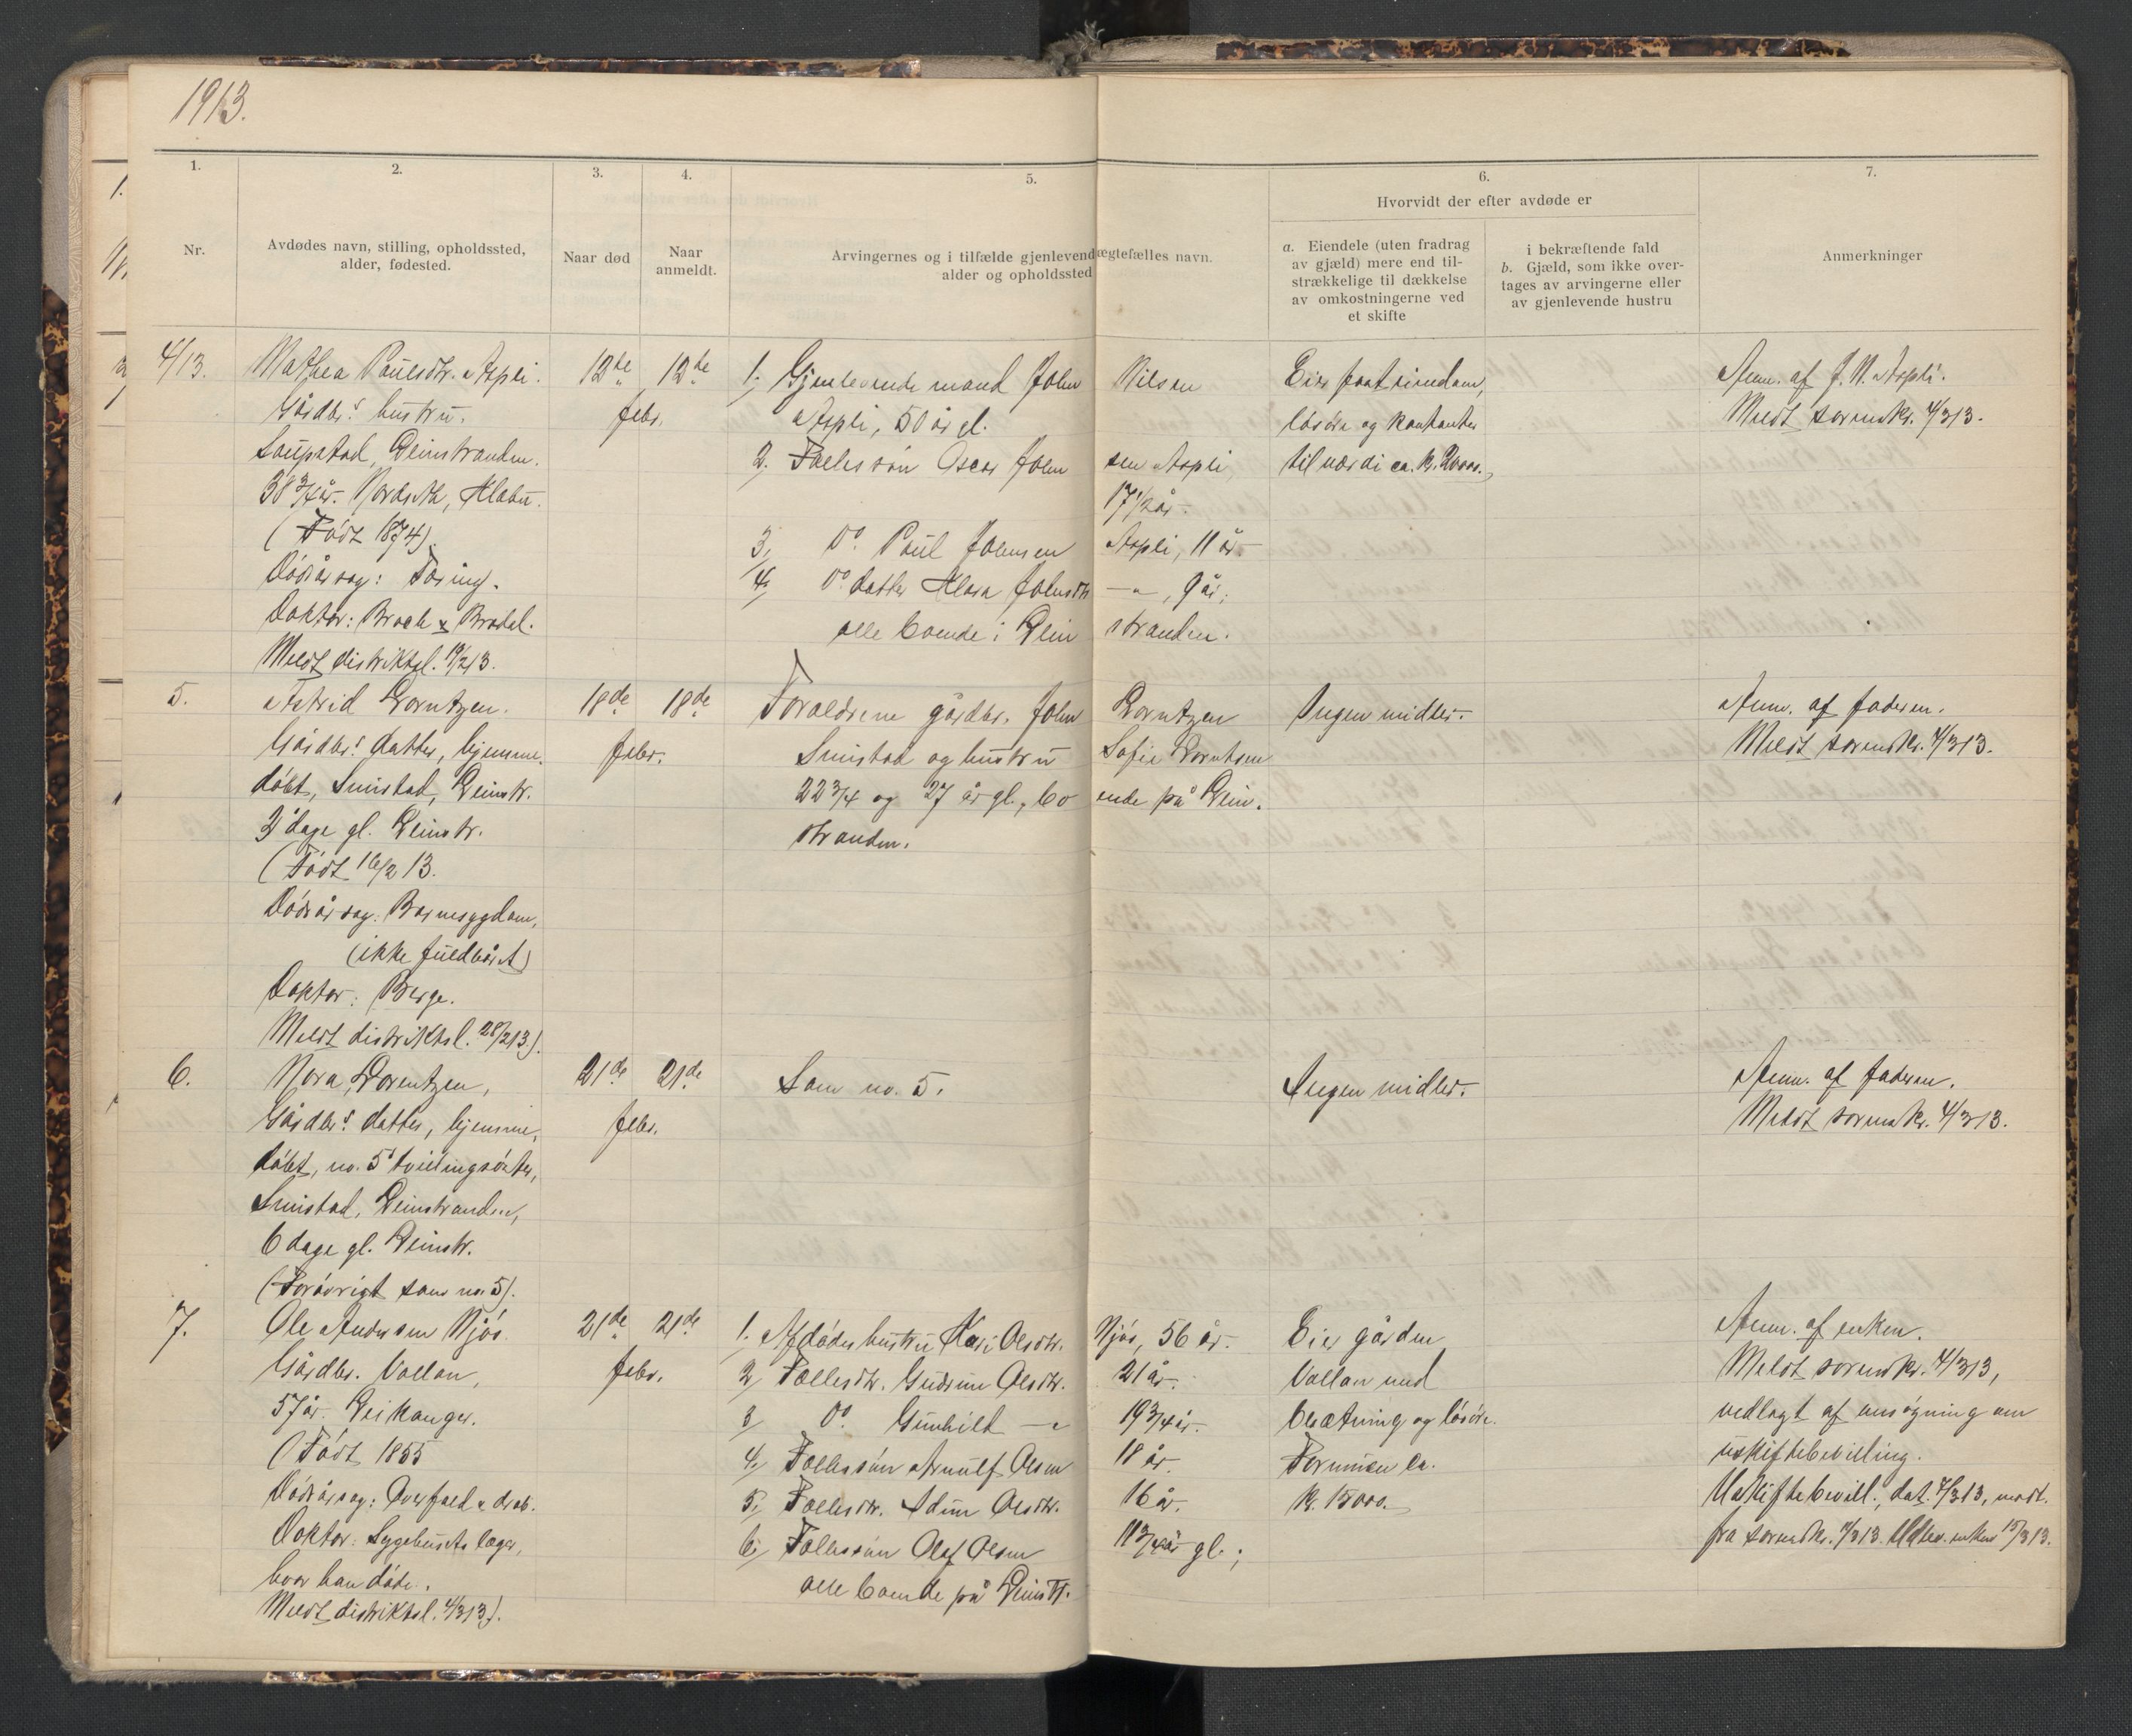 1913.
1.
2.
3.
4.
5.
6.
7.
Nr.
Avdødes navn, stilling, opholdssted,
alder, fødested.
Naar død
Naar
anmeldt.
Arvingernes og i tilfælde gjenlevende ægtefælles navn.
alder og opholdssted
Hvorvidt der efter avdøde er
a. Eiendele (uten fradrag
av gjæld) mere end til-
strækkelige til dækkelse
av omkostningerne ved
et skifte
i bekræftende fald
b. Gjæld, som ikke over-
tages av arvingerne eller
av gjenlevende hustru
Anmerkninger
4/13.
Mathea Paulsdtr. Aspli.
Gårdbr.s hustru.
Saupstad, Leinstranden.
38 3/4 år. Nordseth, Klæbu.
(Født 1874).
Dødsårsag: Tæring.
Doktor: Broch & Brodal.
Meldt distriktsl. 19/2 13.
12te
febr.
12te
1. Gjenlevende mand John Nilsen
Aspli, 50 år gl.
2. Fællessøn Oscar Johnsen Aspli,
17 1/2 år.
3. Do. Paul Johnsen Aspli, 11 år.
4. Do. datter Klara Johnsdtr. —"—, 9 år;
alle boende i Leinstranden.
Eier fast eiendom,
løsøre og kontanter
til værdi ca. kr. 20000.
Anm. af J. N. Aspli.
Meldt sorenskr. 4/3 13.
5.
Astrid Lorntzen.
Gårdbr.s datter, hjemme-
døbt, Smistad, Leinstr.
2 dage gl. Leinstr.
(Født 16/2 13.
Dødsårsag: Barnesygdom,
(ikke fuldbåret)
Doktor: Berge.
Meldt distriktsl. 28/2 13.).
18de
febr.
18de
Forældrene gårdbr. John Lorntzen
Smistad og hustru Sofie Lorntsen
22 3/4 og 27 år gl., boende på Lein-
stranden.
Ingen midler.
Anm. af faderen.
Meldt sorenskr. 4/3 13.
6.
Nora Lorentzen,
Gårdbr.s datter, hjemme-
døbt, no. 5s tvillingsøster,
Smistad, Leinstranden,
6 dage gl. Leinstr.
(Forøvrigt som no. 5).
21de
febr.
21de
Som no. 5.
Ingen midler.
Anm. af faderen.
Meldt sorenskr. 4/3 13.
7.
Ole Andersen Njøs.
Gårdbr. Vollan,
57 år. Leikanger.
(Født 1855
Dødsårsag: Overfald & drab.
Doktor: Sygehusets læger,
hvor han døde.
Meldt distriktsl. 4/3 13).
21de
febr.
21de
1. Afdødes hustru Kari Olsdtr. Njøs, 56 år.
2. Fællesdtr. Gudrun Olsdtr. 21 år.
3. Do. Gunhild —"— 19 3/4 år.
4. Fællessøn Arnulf Olsen 18 år.
5. Fællesdtr. Idun Olsdtr. 16 år.
6. Fællessøn Olaf Olsen 11 3/4 år gl.;
alle boende på Leinstr.
Eier gården
Vollan med
besætning og løsøre.
Formuen ca.
kr. 15000.
Anm. af enken.
Meldt sorenskr. 4/3 13,
vedlagt af ansøgning om
uskiftebevilling.
Uskiftebevill., dat. 7/3 13, modt.
fra sorenskr. 11/3 13. Udlev. enken 15/3 13.